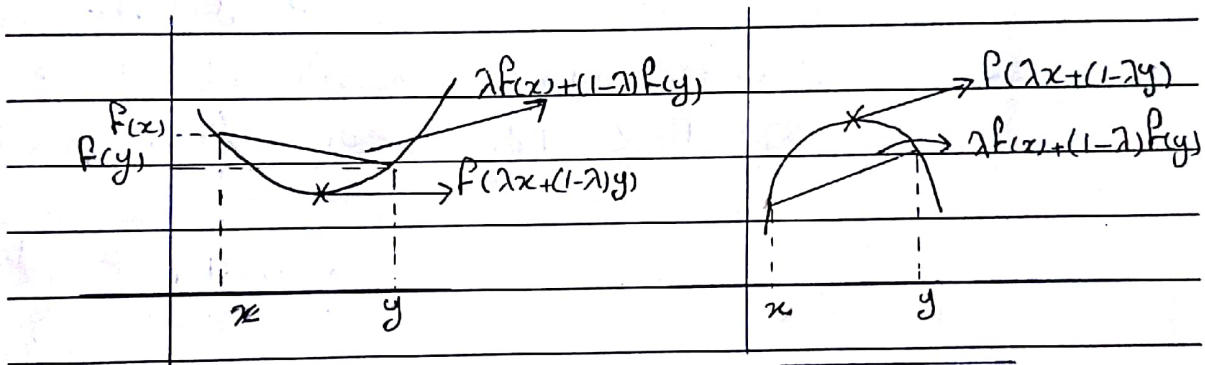 λf(x)+(1-λ)f(y)
f(x)
f(y)
f(λx+(1-λ)y)
x
y
f(λx+(1-λy)
λf(x)+(1-λ)f(y)
x
y